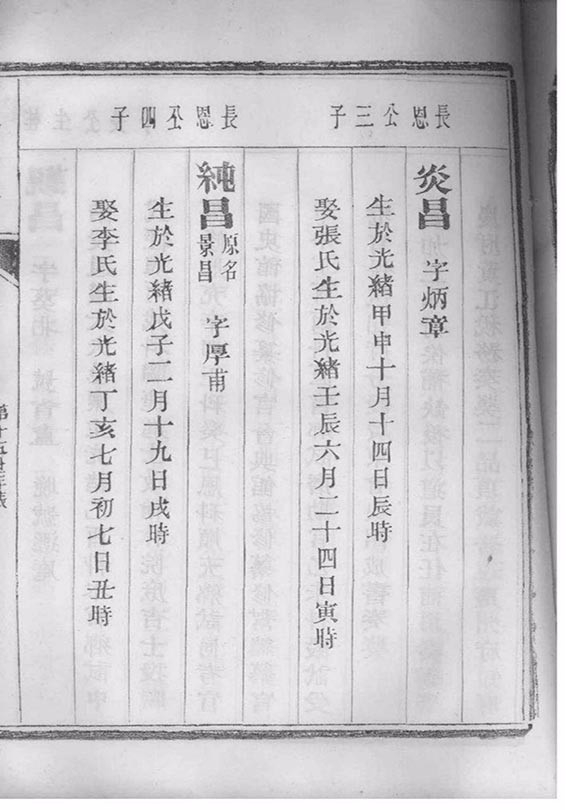 長恩公三子
炎昌 字炳章
生於光緒甲申十月十四日辰時
娶張氏生於光緒壬辰六月二十四日寅時
長恩公四子
純昌 原名景昌 字厚甫
生於光緒戊子二月十九日戌時
娶李氏生於光緒丁亥七月初七日丑時
第十五世年表